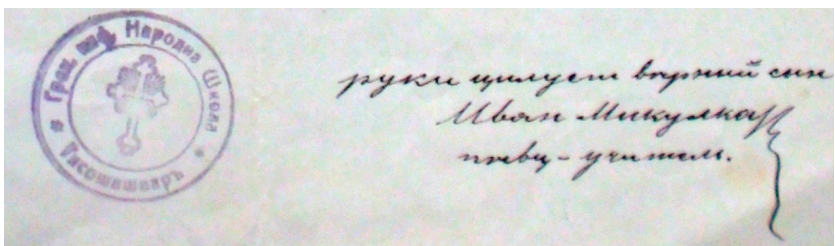 Грек. каф. Народна Школа
* Тисошашваръ *
руки цилует вѣрный син
Иван Микулка
пѣвц-учитель.